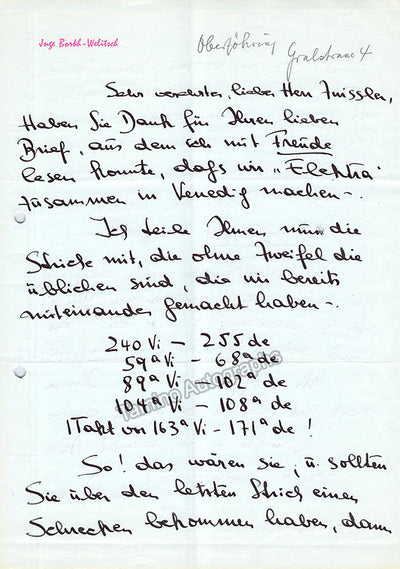 Inge Borkh-Welitsch
Oberföhring
Gralstrasse 4
Sehr verehrter, lieber Herr
Haben Sie Dank für Ihren lieben
Brief, aus dem ich mit Freude
lesen konnte, dass wir "Elektra"
zusammen in Venedig machen -.
Ich teile Ihnen nun die
Striche mit, die ohne Zweifel die
üblichen sind, die wir bereits
miteinander gemacht haben -.
240 Vi - 255 de
59a Vi - 68a de
89a Vi - 102a de
104a Vi - 108a de
1 Takt vor 163a Vi - 171a de !
Tamino Autographs
So! das wären sie, u. sollten
Sie über den letzten Strich einen
Schrecken bekommen haben, dann